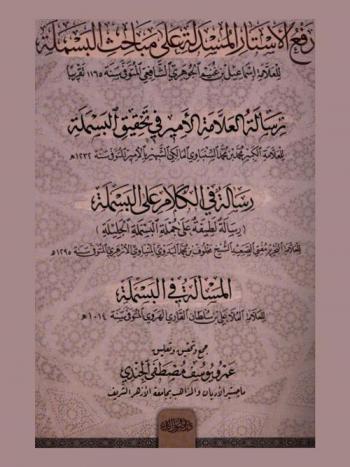 رفع الأستار المسدلة على مباحث البسملة
للعلامة إسماعيل بن غنيم الجوهري الشافعي المتوفى سنة ١١٦٥ تقريبا
رسالة العلامة الأمير في تحقيق البسملة
للعلامة الكبير محمد بن محمد السنباوي المالكي الشهير بالأمير المتوفى سنة ١٢٣٢ هـ
رسالة في الكلام على البسملة
( رسالة لطيفة على جملة البسملة الجليلة )
للعلامة النحرير مفتي الصعيد الشيخ مخلوف بن محمد البدوي المنياوي الأزهري المتوفى سنة ١٢٩٥ هـ
المسألة في البسملة
للعلامة الملا علي بن سلطان القاري الهروي المتوفى سنة ١٠١٤ هـ
جمع وتحقيق وتعليق
عمرو يوسف مصطفى الجندي
ماجستير الأديان والمذاهب بجامعة الأزهر الشريف